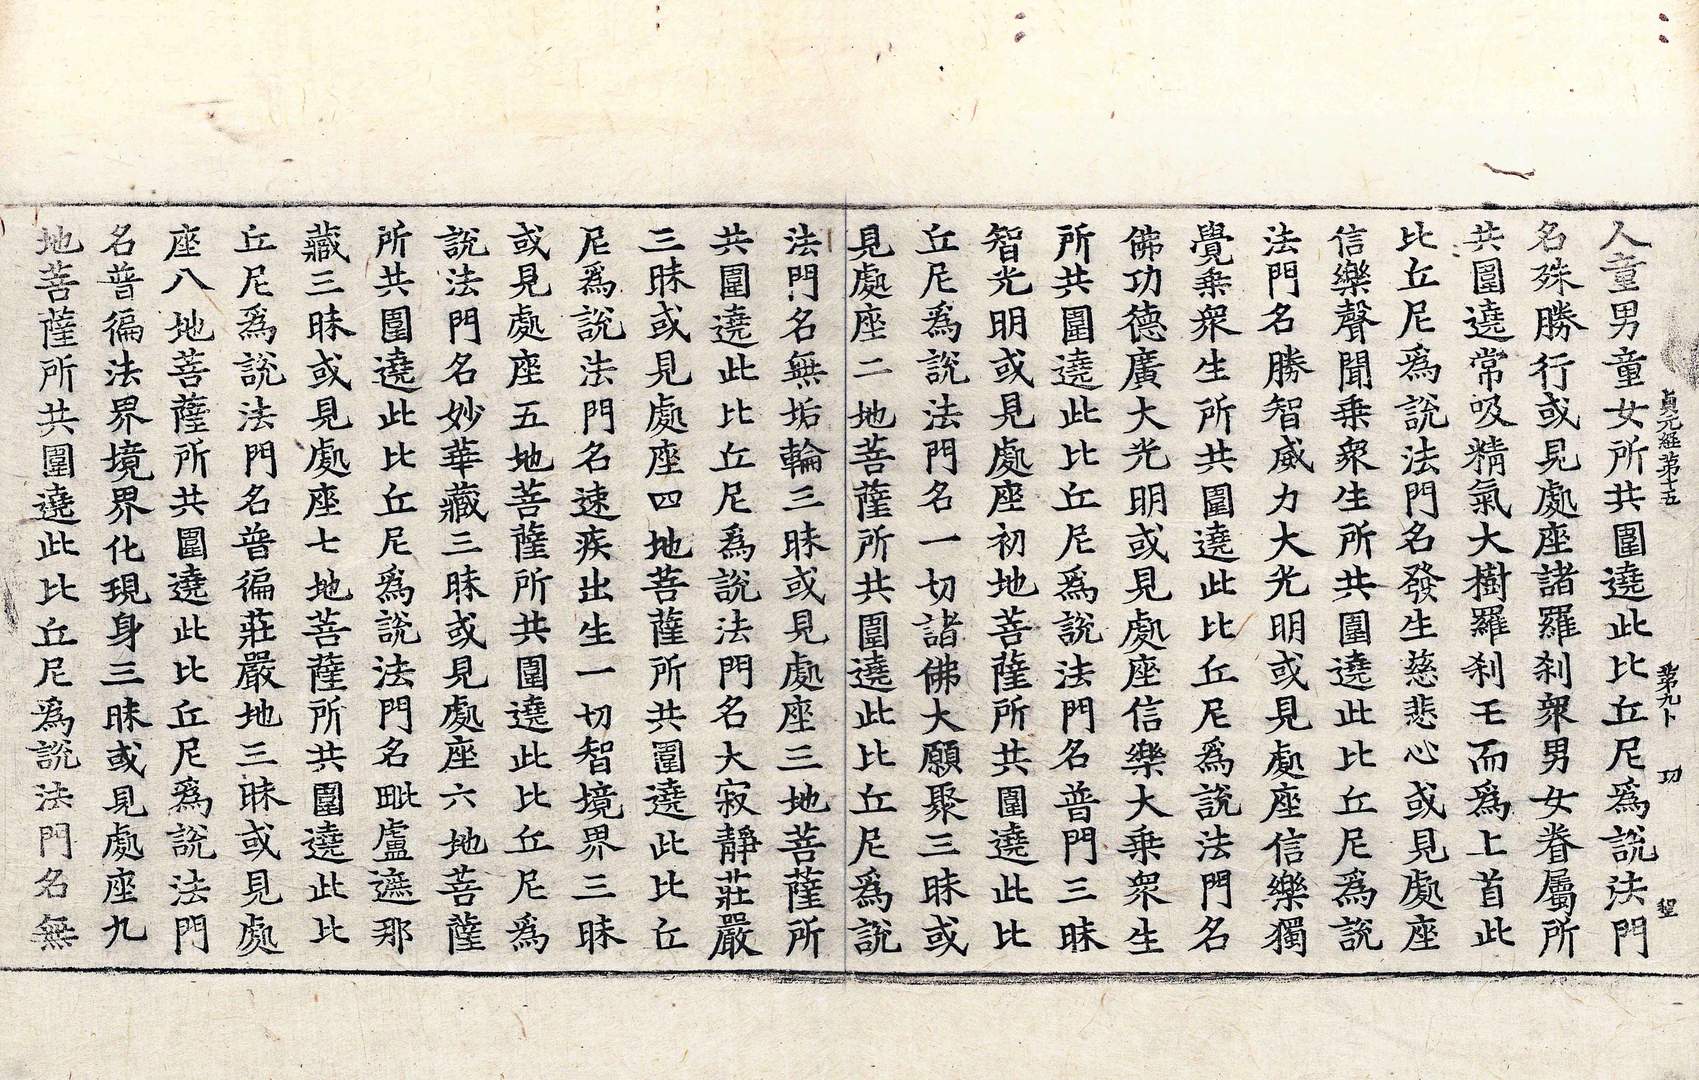 貞元經第十五 第九卜 功 𦔻
人童男童女所共圍遶此比丘尼爲說法門
名殊勝行或見處座諸羅刹衆男女眷屬所
共圍遶常吸精氣大樹羅刹王而爲上首此
比丘尼爲說法門名發生慈悲心或見處座
信樂聲聞乗衆生所共圍遶此比丘尼爲說
法門名勝智威力大光明或見處座信樂獨
覺乗衆生所共圍遶此比丘尼爲說法門名
佛功德廣大光明或見處座信樂大乗衆生
所共圍遶此比丘尼爲說法門名普門三昧
智光明或見處座初地菩薩所共圍遶此比
丘尼爲說法門名一切諸佛大願聚三昧或
見處座二地菩薩所共圍遶此比丘尼爲說
法門名無垢輪三昧或見處座三地菩薩所
共圍遶此比丘尼爲說法門名大寂靜莊嚴
三昧或見處座四地菩薩所共圍遶此比丘
尼爲說法門名速疾出生一切智境界三昧
或見處座五地菩薩所共圍遶此比丘尼爲
說法門名妙華藏三昧或見處座六地菩薩
所共圍遶此比丘尼爲說法門名毗盧遮那
藏三昧或見處座七地菩薩所共圍遶此比
丘尼爲說法門名普徧莊嚴地三昧或見處
座八地菩薩所共圍遶此比丘尼爲說法門
名普徧法界境界化現身三昧或見處座九
地菩薩所共圍遶此比丘尼爲說法門名無